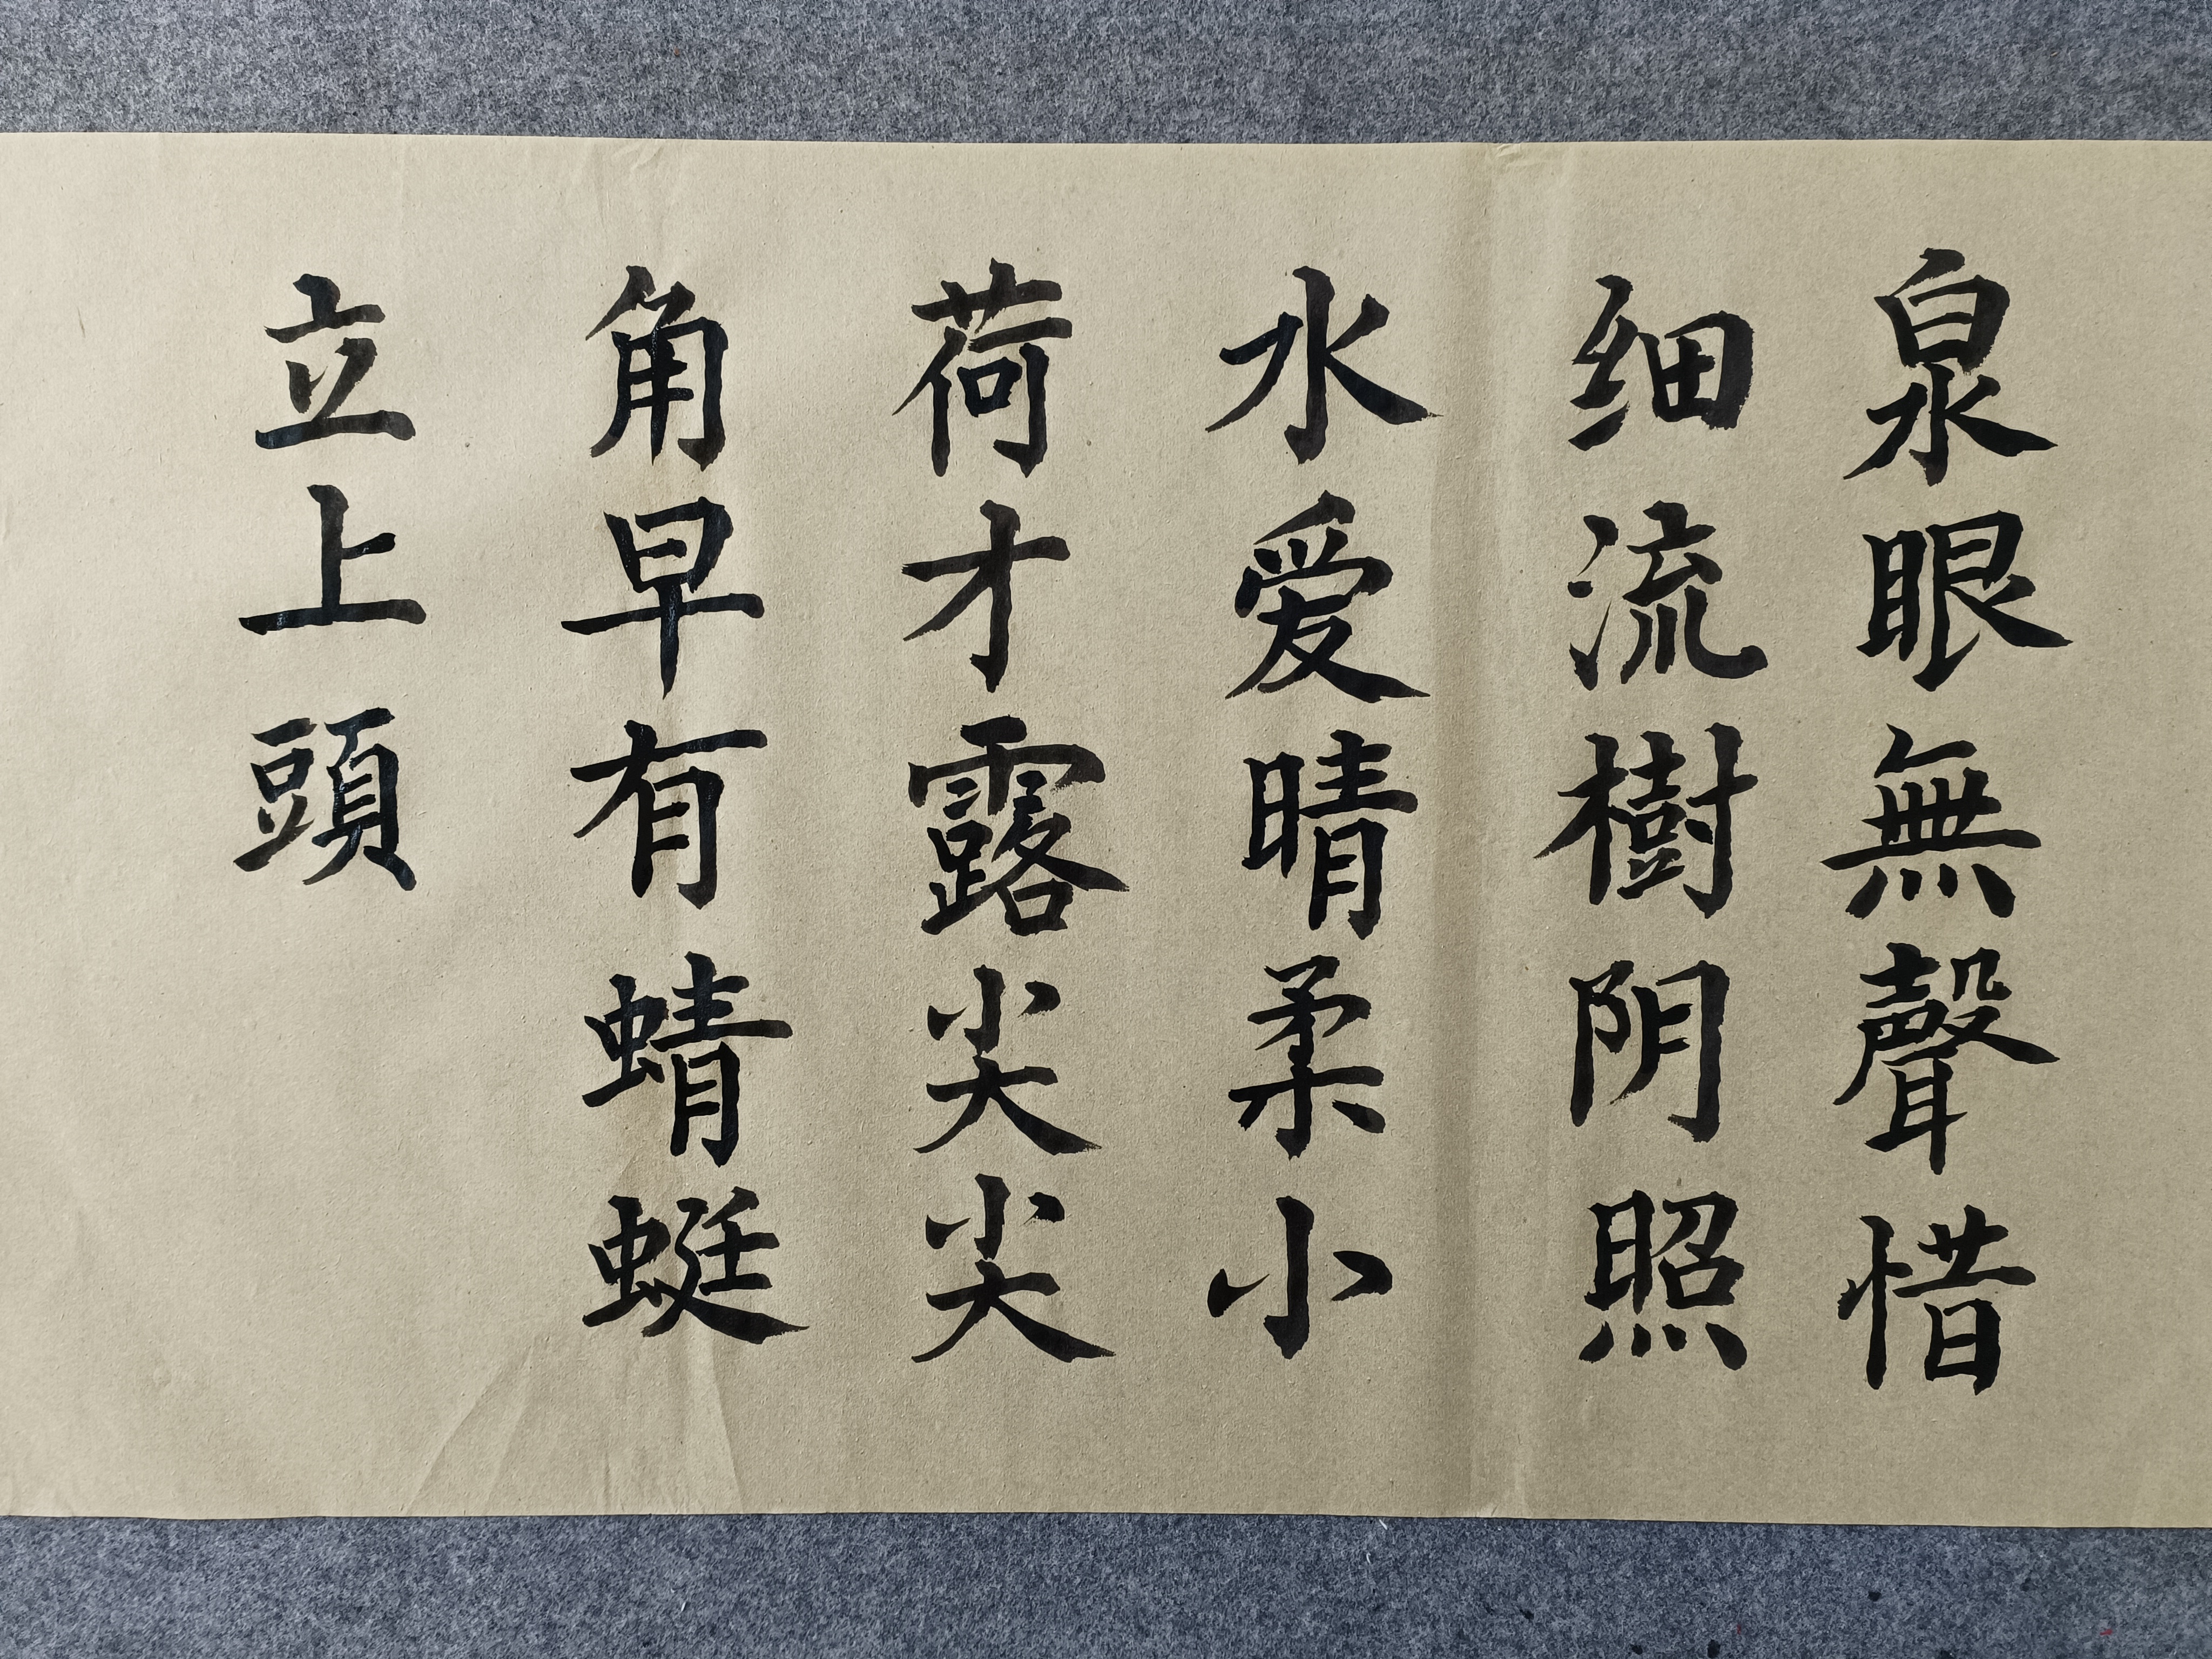 泉眼無聲惜
细流樹阴照
水爱晴柔小
荷才露尖尖
角早有蜻蜓
立上頭